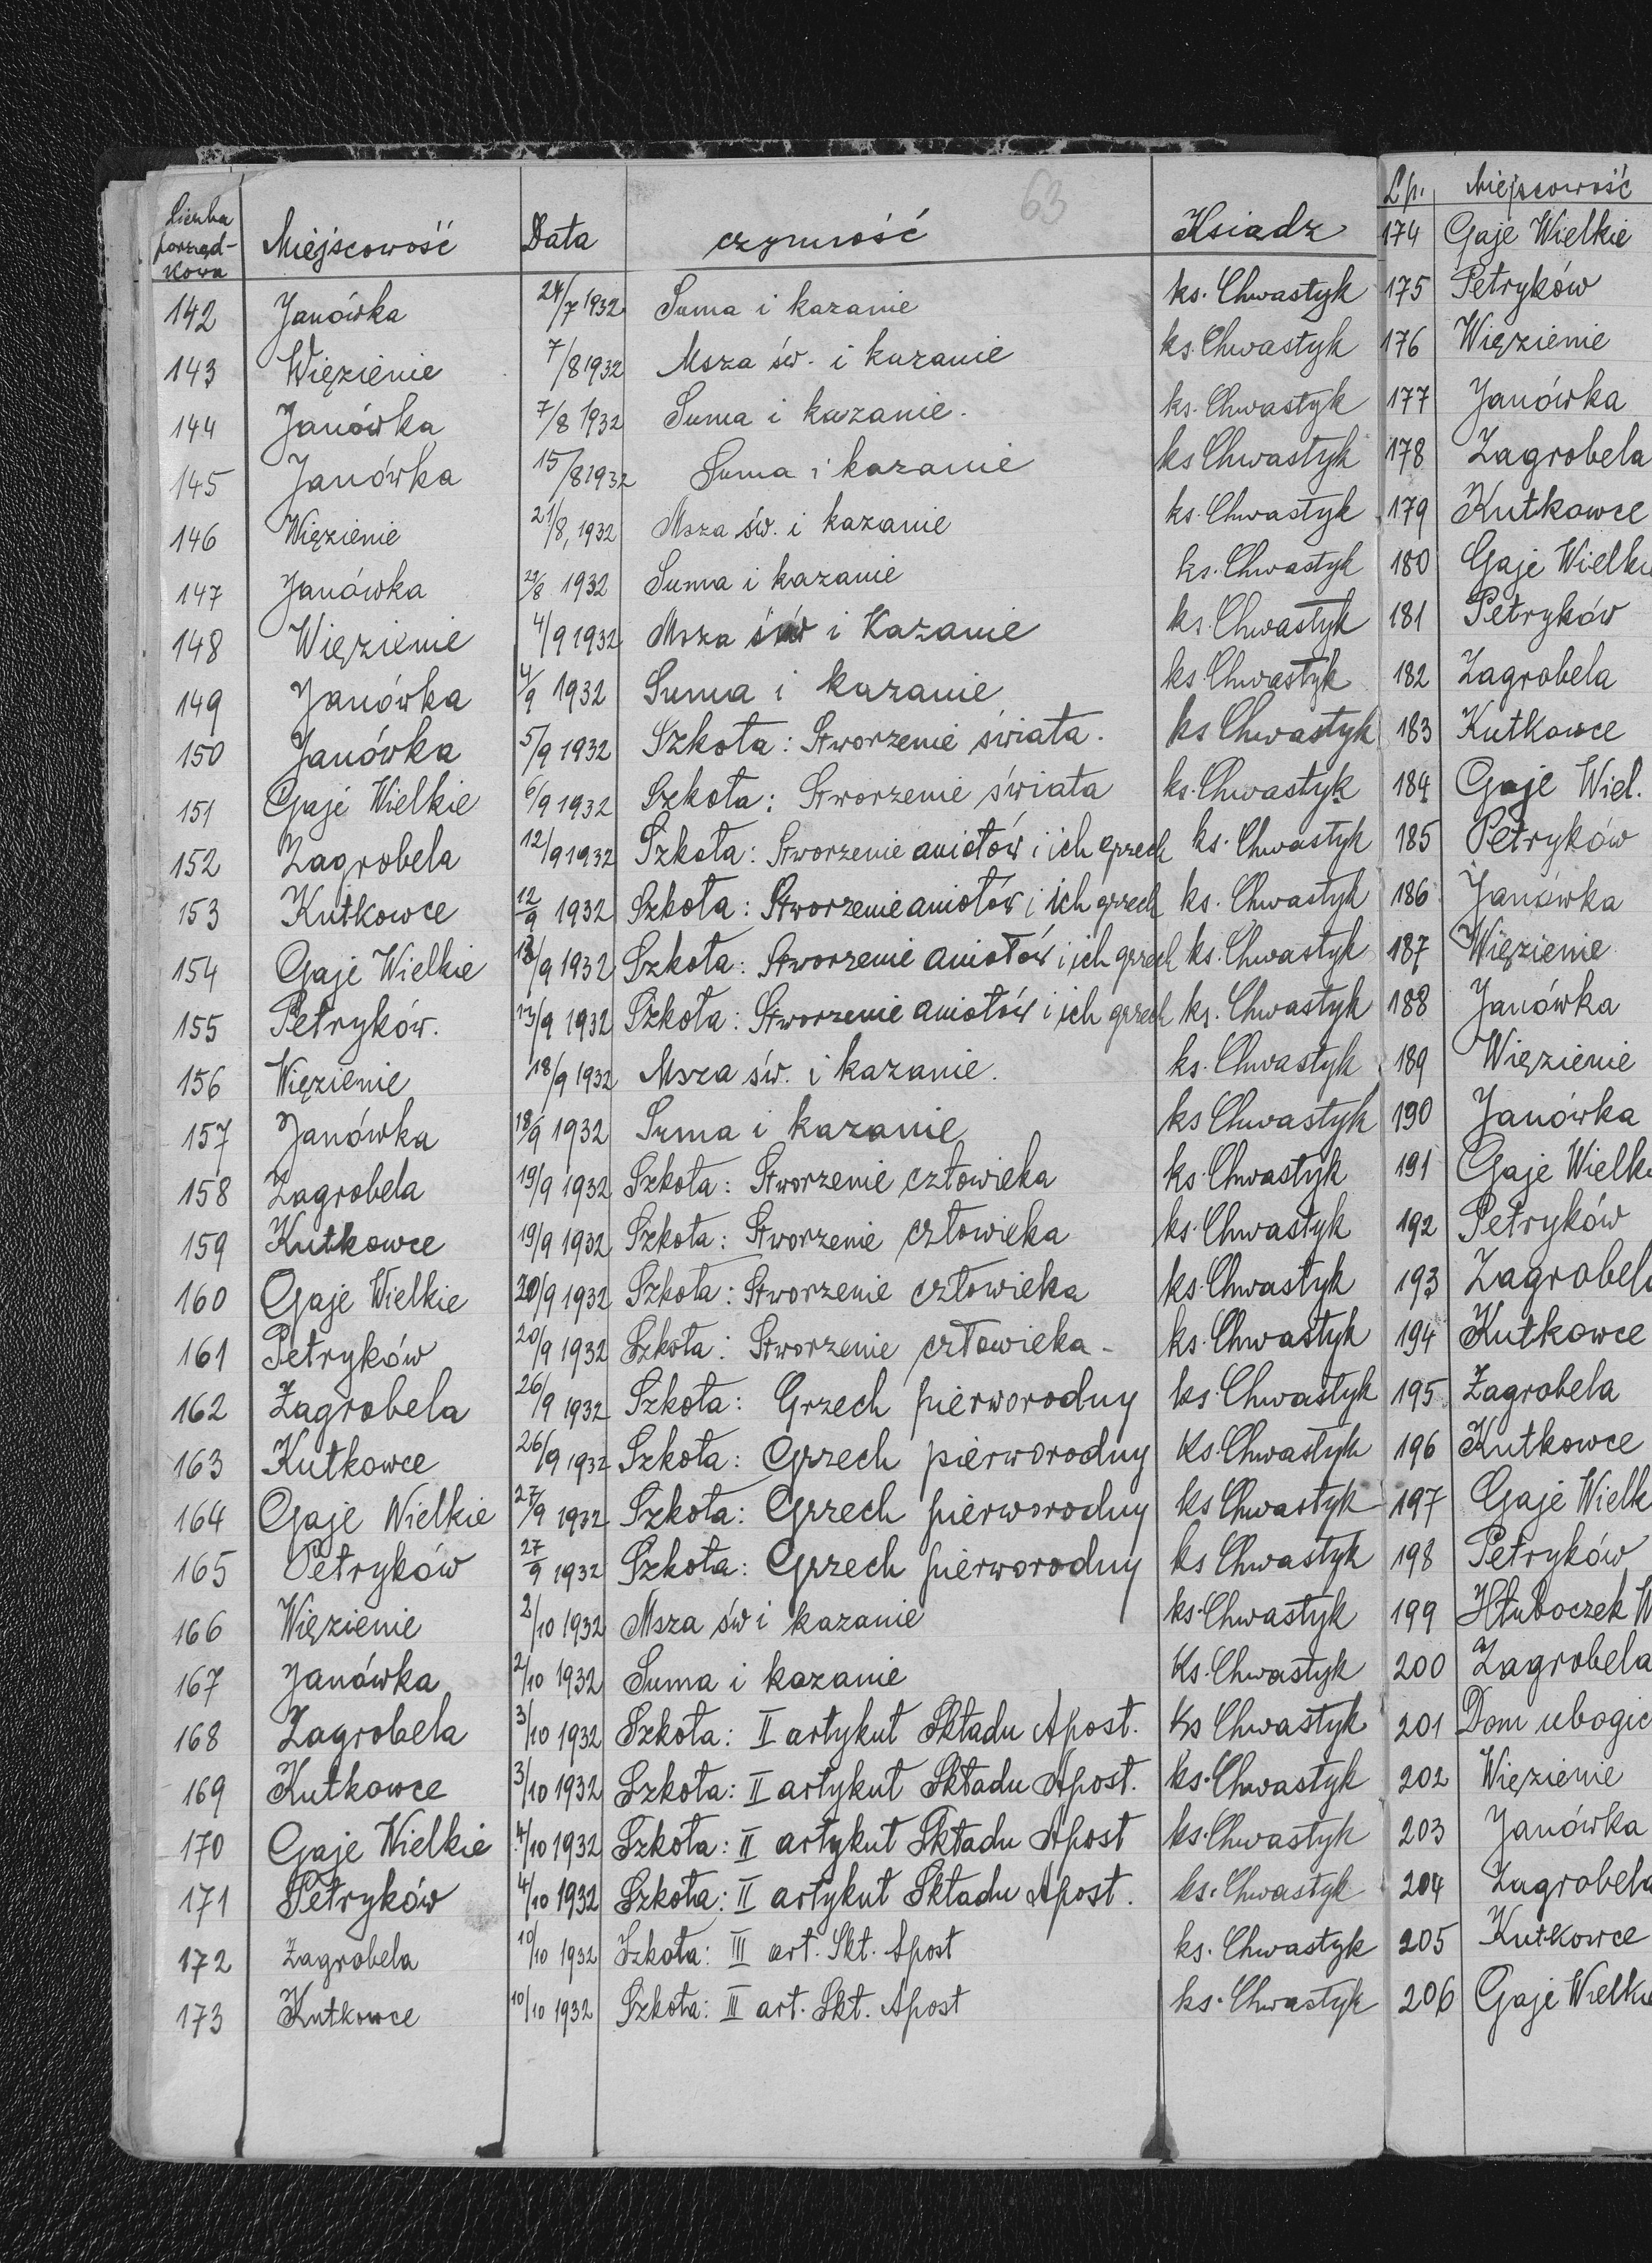 63
Liczba porząd-kowa Miejscowość Data czynność Ksiądz
142 Janówka 24/7 1932 Suma i kazanie ks. Chwastyk
143 Więzienie 7/8 1932 Msza św. i kazanie ks. Chwastyk
144 Janówka 7/8 1932 Suma i kazanie. ks. Chwastyk
145 Janówka 15/8 1932 Suma i kazanie ks Chwastyk
146 Więzienie 21/8, 1932 Msza św. i kazanie ks. Chwastyk
147 Janówka /8 1932 Suma i kazanie ks. Chwastyk
148 Więzienie 4/9 1932 Msza św i Kazanie ks. Chwastyk
149 Janówka 4/9 1932 Suma i kazanie ks. Chwastyk
150 Janówka 5/9 1932 Szkoła: Stworzenie świata. ks Chwastyk
151 Gaje Wielkie 6/9 1932 Szkoła: Stworzenie świata ks. Chwastyk
152 Zagrobela 12/9 1932 Szkoła: Stworzenie aniołów i ich grzech ks. Chwastyk
153 Kutkowce 12/9 1932 Szkoła: Stworzenie aniołów i ich grzech ks. Chwastyk
154 Gaje Wielkie 13/9 1932 Szkoła: Stworzenie aniołów i ich grzech ks. Chwastyk
155 Petryków. 13/9 1932 Szkoła: Stworzenie aniołów i ich grzech ks. Chwastyk
156 Więzienie 18/9 1932 Msza św. i kazanie. ks. Chwastyk
157 Janówka 18/9 1932 Suma i kazanie ks Chwastyk
158 Zagrobela 19/9 1932 Szkoła: Stworzenie człowieka ks. Chwastyk
159 Kutkowce 19/9 1932 Szkoła: Stworzenie człowieka ks. Chwastyk
160 Gaje Wielkie 20/9 1932 Szkoła: Stworzenie człowieka ks. Chwastyk
161 Petryków 20/9 1932 Szkoła: Stworzenie człowieka - ks. Chwastyk
162 Zagrobela 26/9 1932 Szkoła: Grzech pierworodny ks. Chwastyk
163 Kutkowce 26/9 1932 Szkoła: Grzech pierworodny ks. Chwastyk
164 Gaje Wielkie 27/9 1932 Szkoła: Grzech pierworodny ks Chwastyk
165 Petryków 27/9 1932 Szkoła: Grzech pierworodny ks Chwastyk
166 Więzienie 2/10 1932 Msza św i kazanie ks. Chwastyk
167 Janówka 2/10 1932 Suma i kazanie Ks. Chwastyk
168 Zagrobela 3/10 1932 Szkoła: II artykuł Składu Apost. ks Chwastyk
169 Kutkowce 3/10 1932 Szkoła: II artykuł Składu Apost. ks. Chwastyk
170 Gaje Wielkie 4/10 1932 Szkoła: II artykuł Składu Apost ks. Chwastyk
171 Petryków 4/10 1932 Szkoła: II artykuł Składu Apost. ks. Chwastyk
172 Zagrobela 10/10 1932 Szkoła: III art. Skł. Apost ks. Chwastyk
173 Kutkowce 10/10 1932 Szkoła: III art. Skł. Apost ks. Chwastyk
Lp. Miejscowość
174 Gaje Wielkie
175 Petryków
176 Więzienie
177 Janówka
178 Zagrobela
179 Kutkowce
180 Gaje Wielki
181 Petryków
182 Zagrobela
183 Kutkowce
184 Gaje Wiel.
185 Petryków
186 Janówka
187 Więzienie
188 Janówka
189 Więzienie
190 Janówka
191 Gaje Wielk
192 Petryków
193 Zagrobela
194 Kutkowce
195 Zagrobela
196 Kutkowce
197 Gaje Wielk
198 Petryków
199 Hłuboczek W
200 Zagrobela
201 Dom ubogic
202 Więzienie
203 Janówka
204 Zagrobela
205 Kutkowce
206 Gaje Wielkie